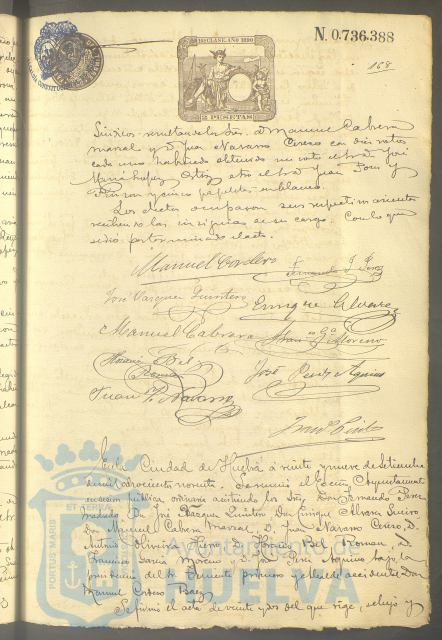 N. 0.736.388
168
CLASE. AÑO 1890
2 PESETAS
Síndicos resultan los Sres. D. Manuel Cabrera
Marval y D. Juan Navarro Cerero con diez votos
cada uno habiendo obtenido un voto el Sr. José
María Ortiz otro el Sr. Juan Toro y
y cinco papeletas en blanco.
Los electos ocuparon sus respectivos asientos
recibiendo las insignias de su cargo. Con lo que
se dió por terminado el acto.
Manuel Cordero
Fernando
José Vazquez Quintero
Enrique Alvarez
Manuel Cabrera
Franco Ga Moreno
Horacio Bel
Roman
José Perez Aquino
Juan N. Navarro
En la Ciudad de Huelva á veinte y nueve de Setiembre
de mil ochocientos noventa. Se reunió el Excmo. Ayuntamiento
en sesion pública ordinaria asistiendo los Sres. Don Fernando Perez
D. José Vazquez Quintero Don Enrique
Don Manuel Cabrera Marval, D. Juan Navarro Cerero, D.
Antonio Oliveira D. Horacio Bel Roman D.
Francisco García Moreno y D. José Perez Aquino bajo la
presidencia del Sr. Teniente primero Alcalde accidental Don
Manuel Cordero Baez
Se leyó el acta de veinte y dos del que rige,
ET TERRÆ
PORTUS MARIS
Ayuntamiento de
HUELVA